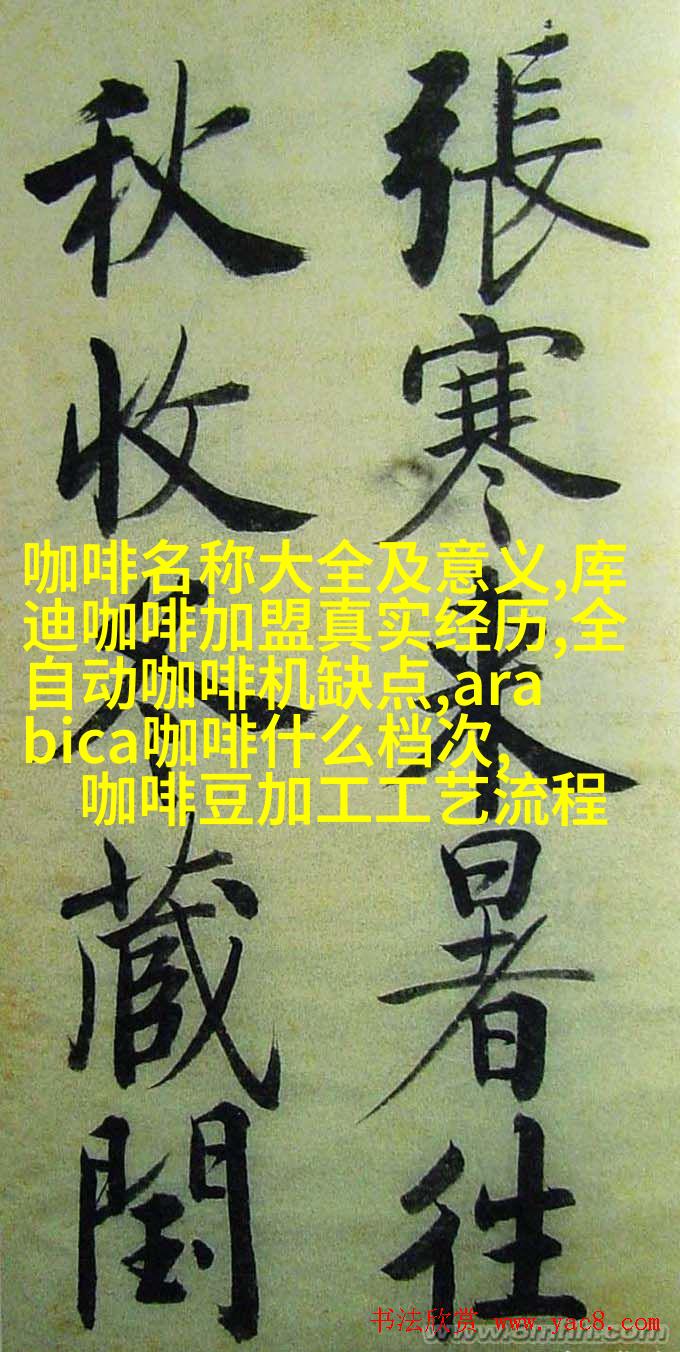 張寒来暑往
秋收冬蔵閏
咖啡名称大全及意义,库
迪咖啡加盟真实经历,全
自动咖啡机缺点,ara
bica咖啡什么档次,
咖啡豆加工工艺流程
书法欣赏 www.yac8.com